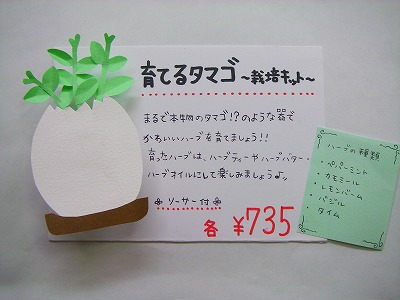 育てるタマゴ～栽培キット～
まるで本物のタマゴ!?のような器で
かわいいハーブを育てましょう!!
育ったハーブは、ハーブティーやハーブバター・
ハーブオイルにして楽しみましょう♪
❀ ソーサー付 ❀
各 ¥735
ハーブの種類
・ペパーミント
・カモミール
・レモンバーム
・バジル
・タイム